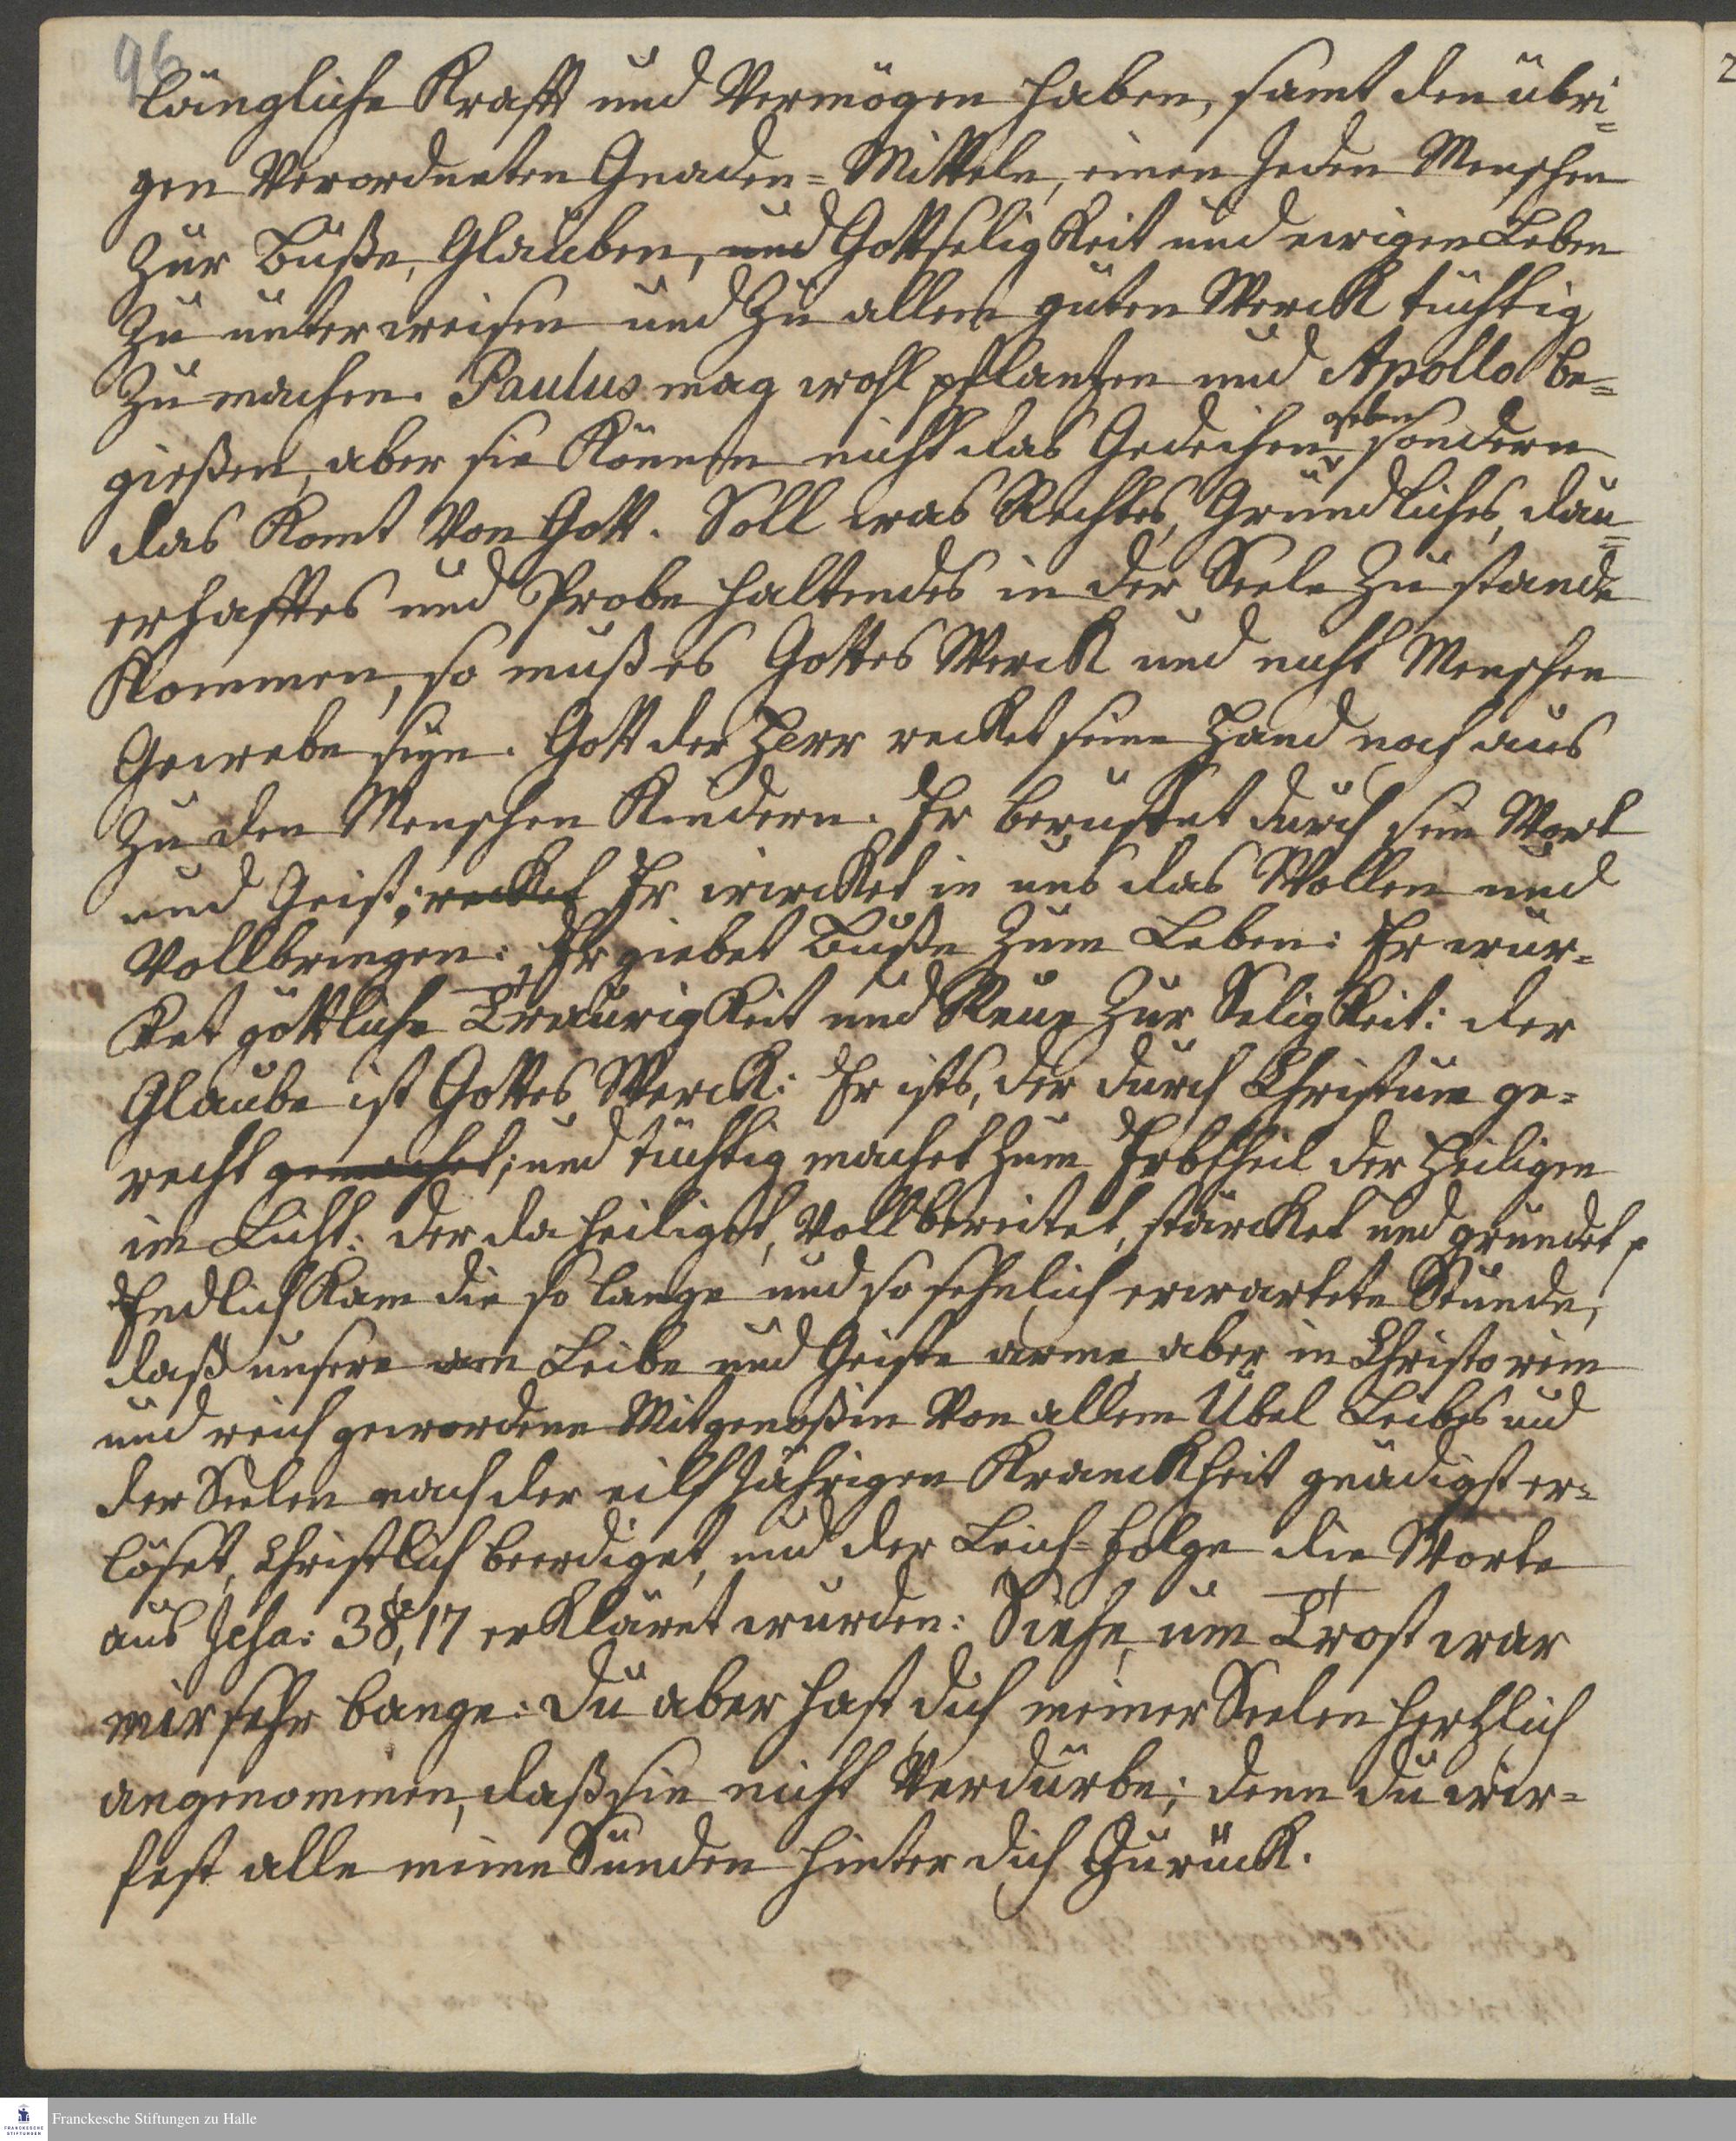 96
längliche Krafft und Vermögen haben, samt den übri=
gen Verordneten Gnaden=Mitteln, einen Jeden Menschen
zur Buße, Glauben, und Gottseligkeit und ewigen Leben
zu unterweisen und zu allem guten Werck tüchtig
zu machen. Paulus mag wohl pflantzen und Apollo be=
gießen, aber sie können nicht das Gedeihen geben sondern
das komt von Gott. Soll was Rechtes, Gründliches, dau=
erhafftes und Probe haltendes in der Seele zu stande
kommen, so muß es Gottes Werck und nicht Menschen
Gewebe seyn. Gott der HErr recket seine Hand noch aus
zu den Menschen Kindern. Er beruffet durch sein Wort
und Geist: recket Er wircket in uns das Wollen und
Vollbringen: Er giebet Buße zum Leben: Er wür=
ket göttliche Traurigkeit und Reue zur Seligkeit: der
Glaube ist Gottes Werck: Er ists, der durch Christum ge=
recht gemachet; und tüchtig machet zum Erbtheil der Heiligen
im Licht: der da heiliget, Vollbereitet, stärcket und gründet p
Endlich kam die so lange und so sehnlich erwartete Stunde,
daß unsere am Leibe und Geiste arme, aber in Christo rein
und reich gewordene Mitgenoßin von allem Übel Leibes und
der Seelen nach der eilf Jährigen Kranckheit gnädigst er=
löset, Christlich beerdiget, und der Leich=Folge die Worte
aus Jesa: 38,17 erkläret wurden: Siehe, um Trost war
mir sehr bange: Du aber hast dich meiner Seelen hertzlich
angenommen, daß sie nicht Verdürbe; denn du wir=
fest alle meine Sünden hinter dich zurück.
Franckesche Stiftungen zu Halle
FRANCKESCHE
STIFTUNGEN